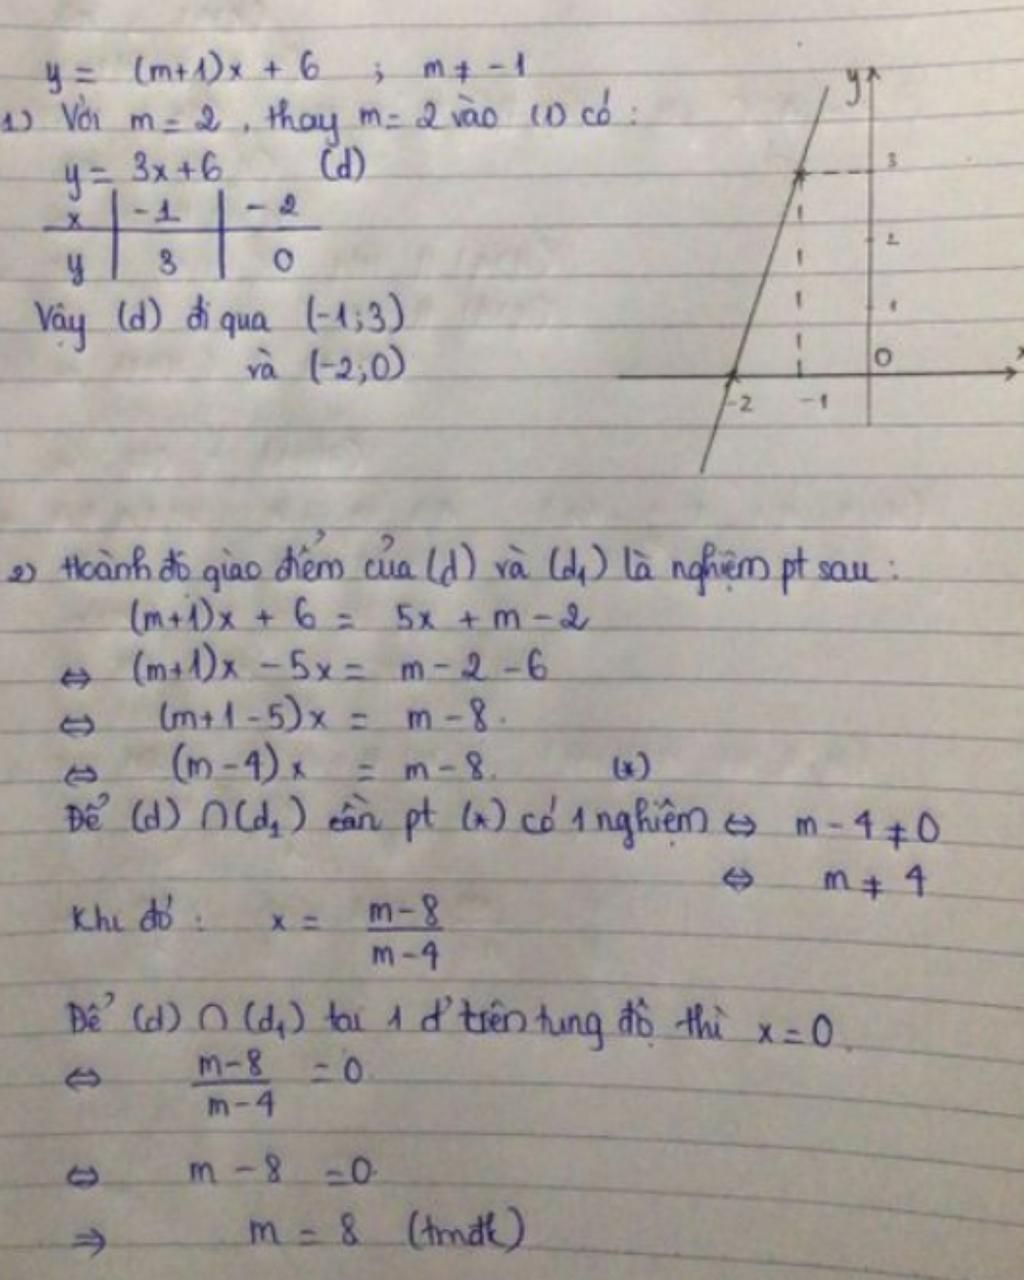 y = (m+1)x + 6 ; m ≠ -1
1) Với m = 2, thay m = 2 vào (1) có :
y = 3x+6 (d)
x | -1 | -2
y | 3 | 0
Vậy (d) đi qua (-1;3)
và (-2;0)
y
3
2
1
O
x
-2 -1
2) Hoành độ giao điểm của (d) và (d₁) là nghiệm pt sau :
(m+1)x + 6 = 5x + m - 2
⇔ (m+1)x - 5x = m - 2 - 6
⇔ (m+1-5)x = m - 8.
⇔ (m-4)x = m - 8. (*)
Để (d) ∩ (d₁) cần pt (*) có 1 nghiệm ⇔ m - 4 ≠ 0
⇔ m ≠ 4
Khi đó : x = \frac{m-8}{m-4}
Để (d) ∩ (d₁) tại 1 đ' trên tung độ thì x = 0.
⇔ \frac{m-8}{m-4} = 0.
⇔ m - 8 = 0.
⇒ m = 8 (tmđk)